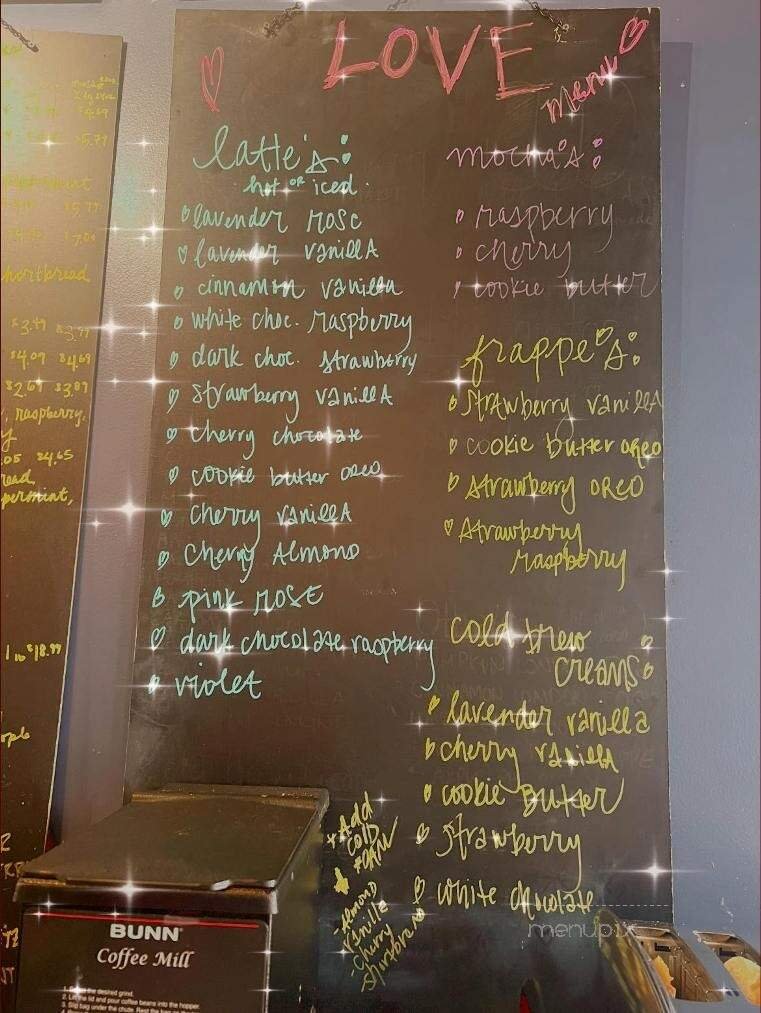 LOVE
menu
latte's:
hot or iced.
lavender rose
lavender vanilla
cinnamon vanilla
white choc. raspberry
dark choc. strawberry
strawberry vanilla
cherry chocolate
cookie butter oreo
cherry vanilla
cherry Almond
pink rose
dark chocolate raspberry
violet
mocha's:
raspberry
cherry
cookie butter
frappe's:
strawberry vanilla
cookie butter oreo
strawberry oreo
strawberry
raspberry
cold brew
creams:
lavender vanilla
cherry vanilla
cookie butter
strawberry
white chocolate
+Add
cold
foam
-Almond
vanilla
-cherry
shortbread
$5.79
$5.77
hortbread
$3.49 $3.99
$4.09 $4.69
$2.69 $3.89
, raspberry.
$4.65
permint,
1 lb $18.99
BUNN
Coffee Mill
2. Lift the lid and pour coffee beans into the hopper.
menupix